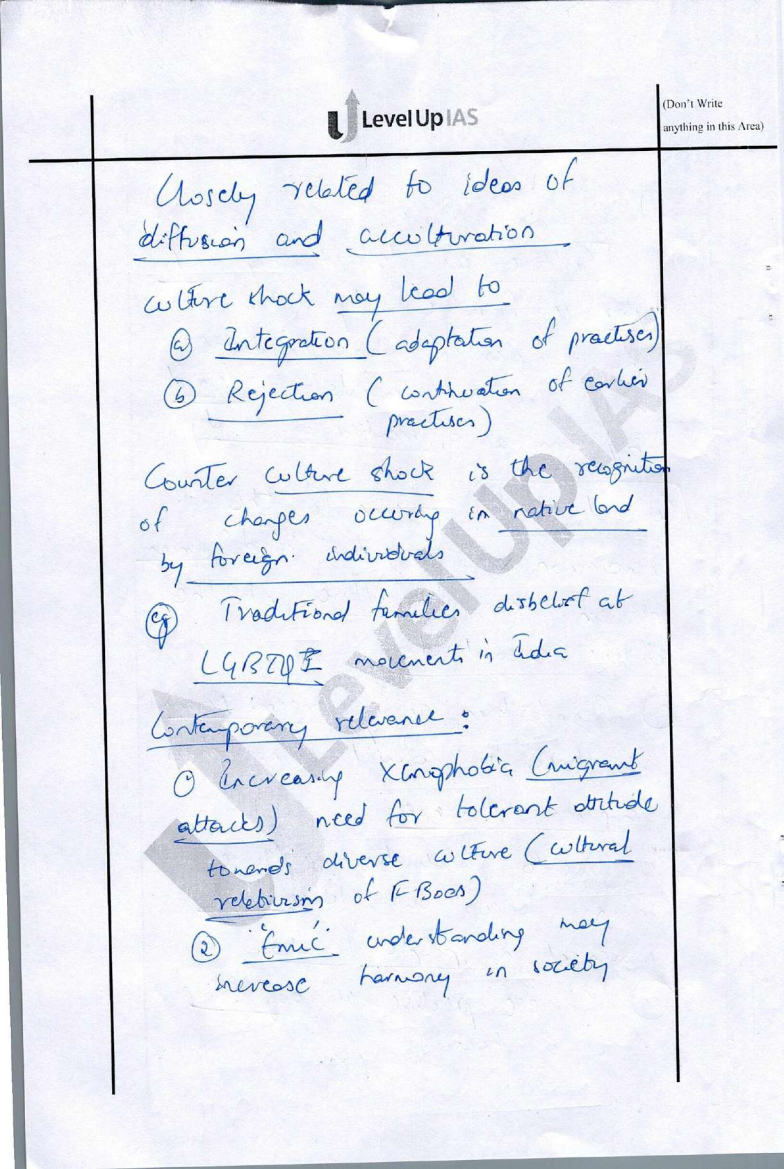 Level Up IAS
(Don't Write
anything in this Area)
Closely related to ideas of
diffusion and acculturation
Culture shock may lead to
(a) Integration (adaptation of practises)
(b) Rejection (continuation of earlier
practises)
Counter culture shock is the recognition
of changes occuring in native land
by foreign individuals
(eg) Traditional families disbelief at
LGBTQI movements in India
Contemporary relevance :
(1) Increasing Xenophobia (migrant
attacks) need for tolerant attitude
towards diverse culture (cultural
relativism of F Boas)
(2) 'Emic' understanding may
increase harmony in society
Level Up IAS